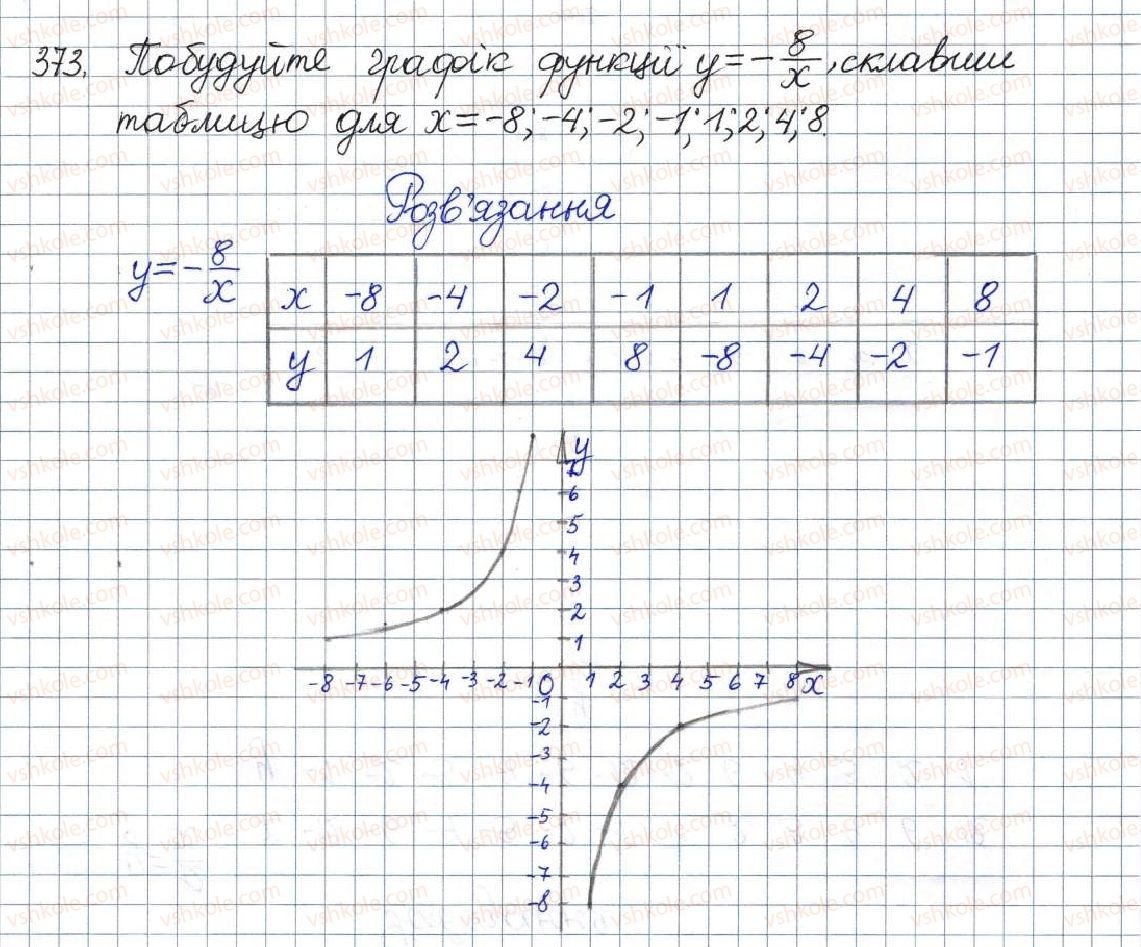 373. Побудуйте графік функції y = - 8/x, склавши
таблицю для x = -8; -4; -2; -1; 1; 2; 4; 8.
Розв'язання
y = - 8/x
x -8 -4 -2 -1 1 2 4 8
y 1 2 4 8 -8 -4 -2 -1
y
7
6
5
4
3
2
1
-8 -7 -6 -5 -4 -3 -2 -1 0 1 2 3 4 5 6 7 8 x
-1
-2
-3
-4
-5
-6
-7
-8
vshkole.com